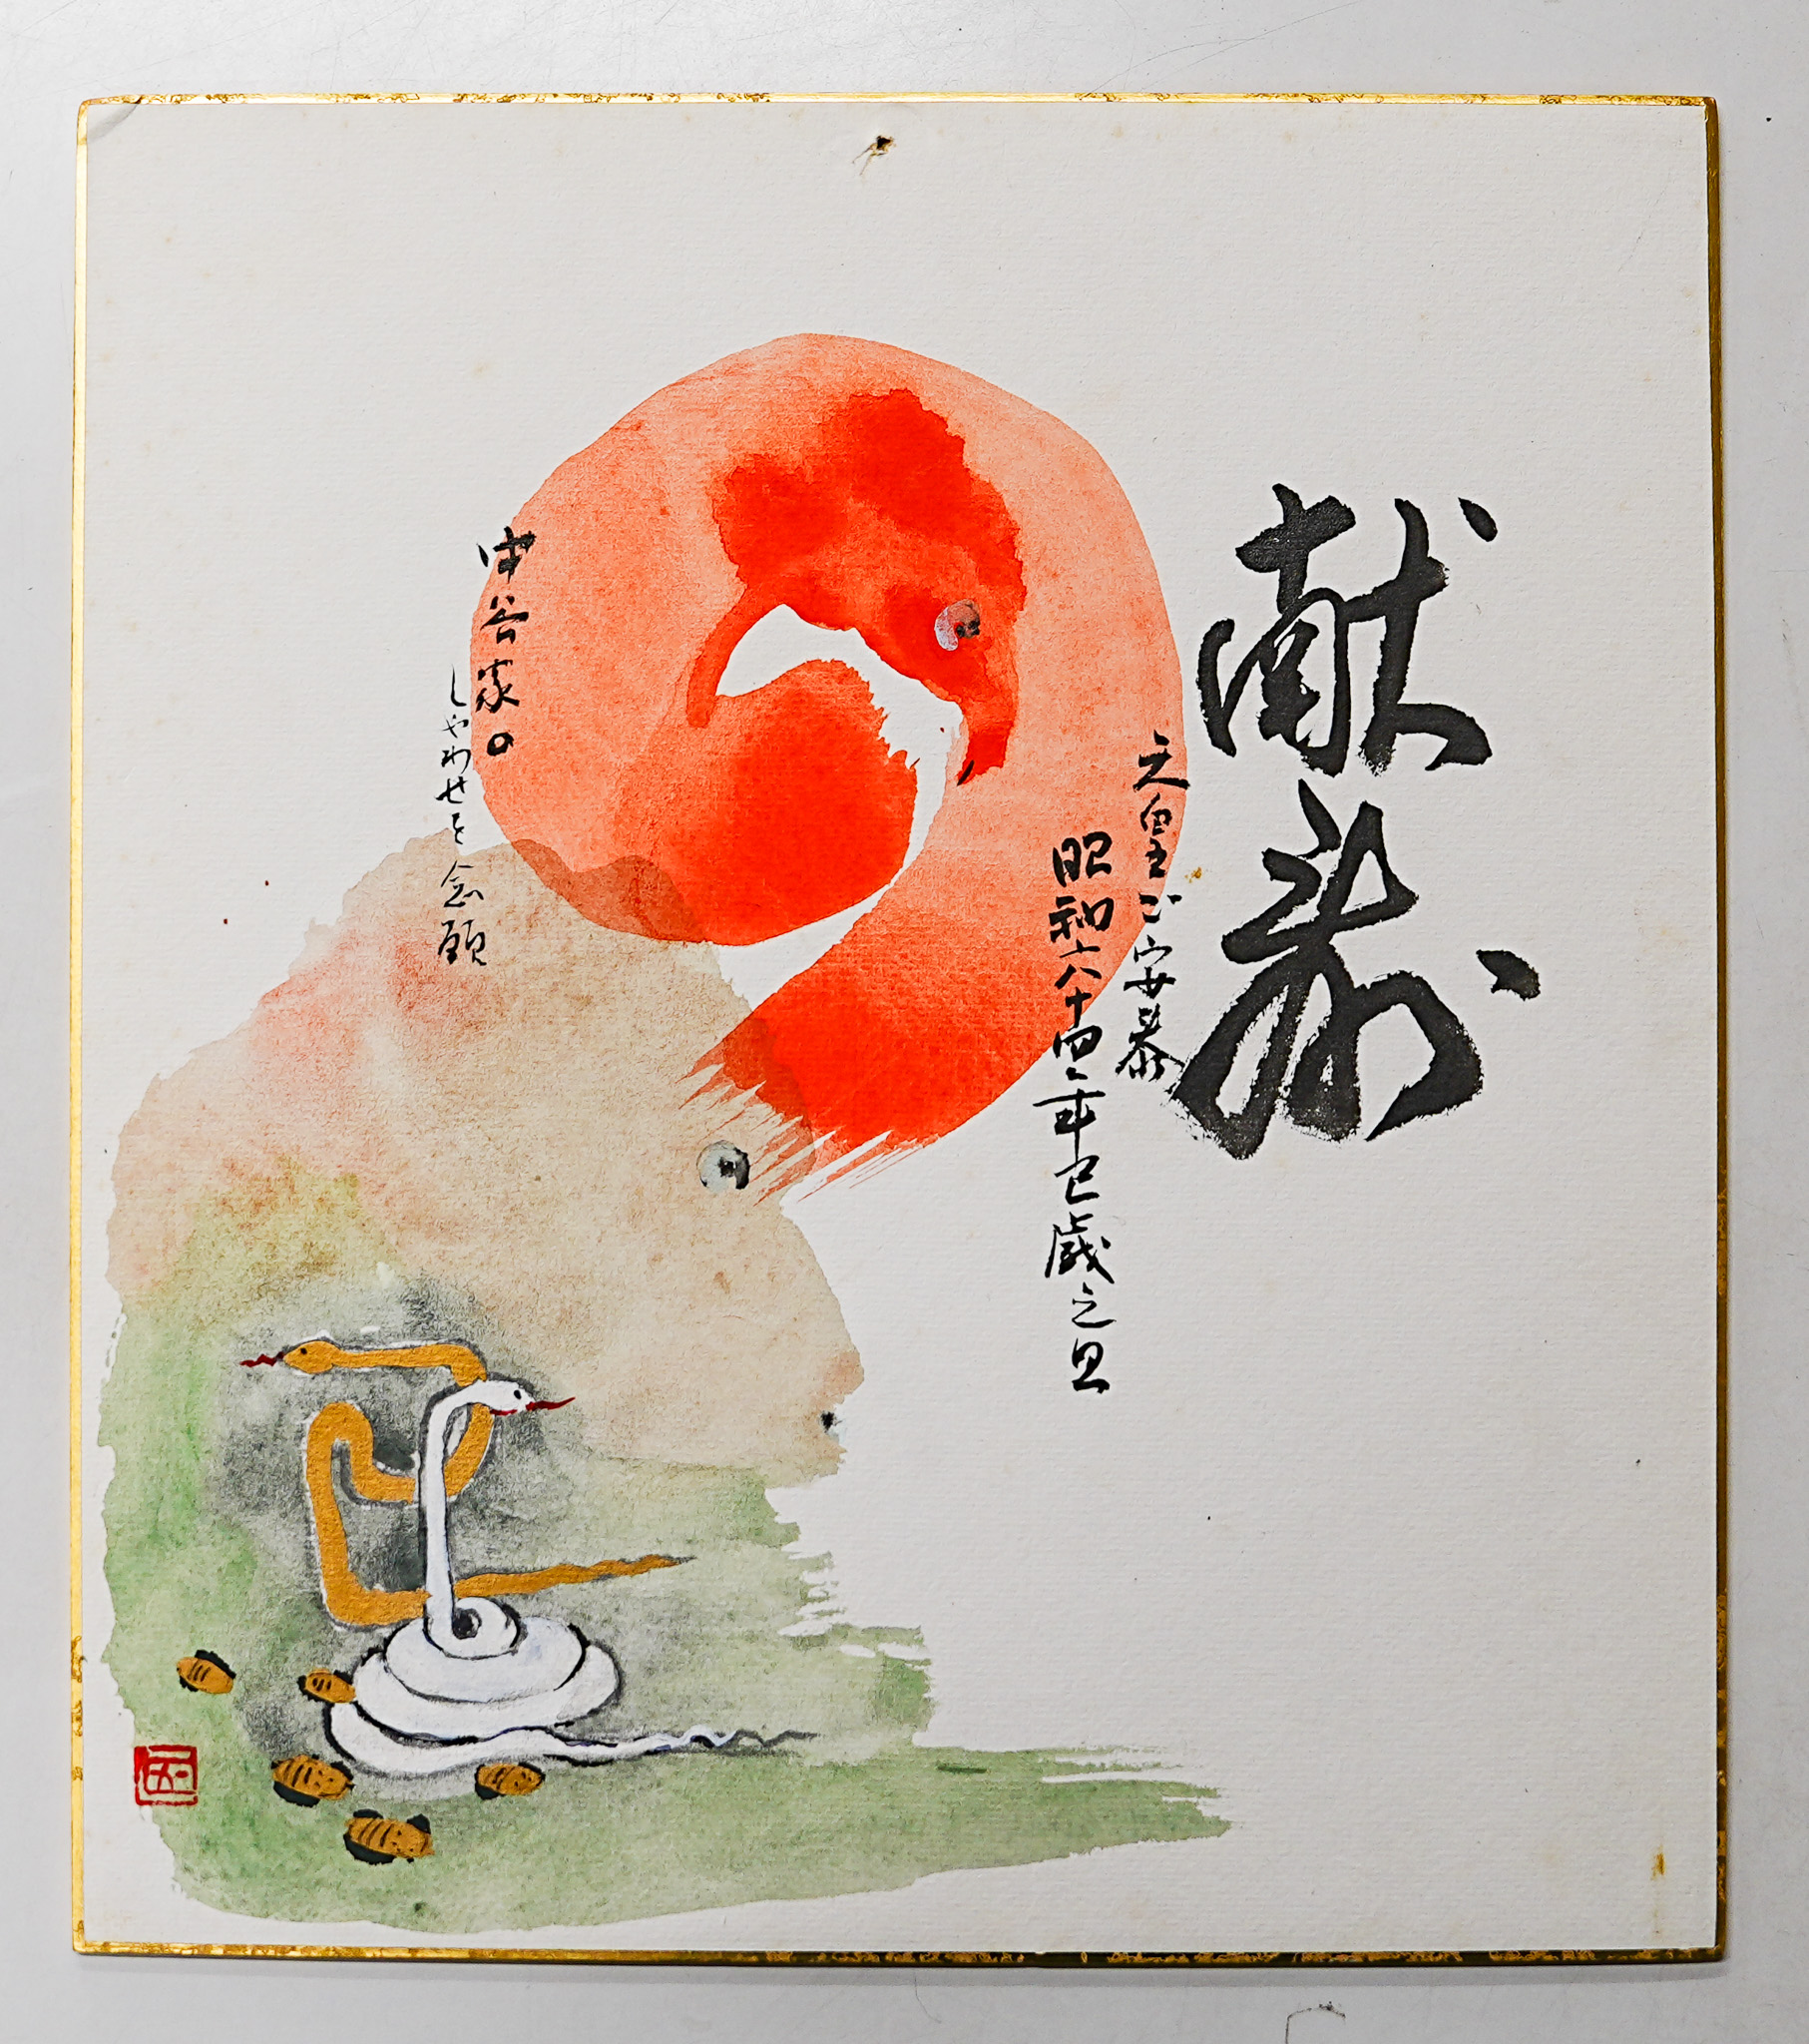 献寿
天皇ご安泰
昭和六十四年巳歳之旦
中谷家の
しやわせを念願